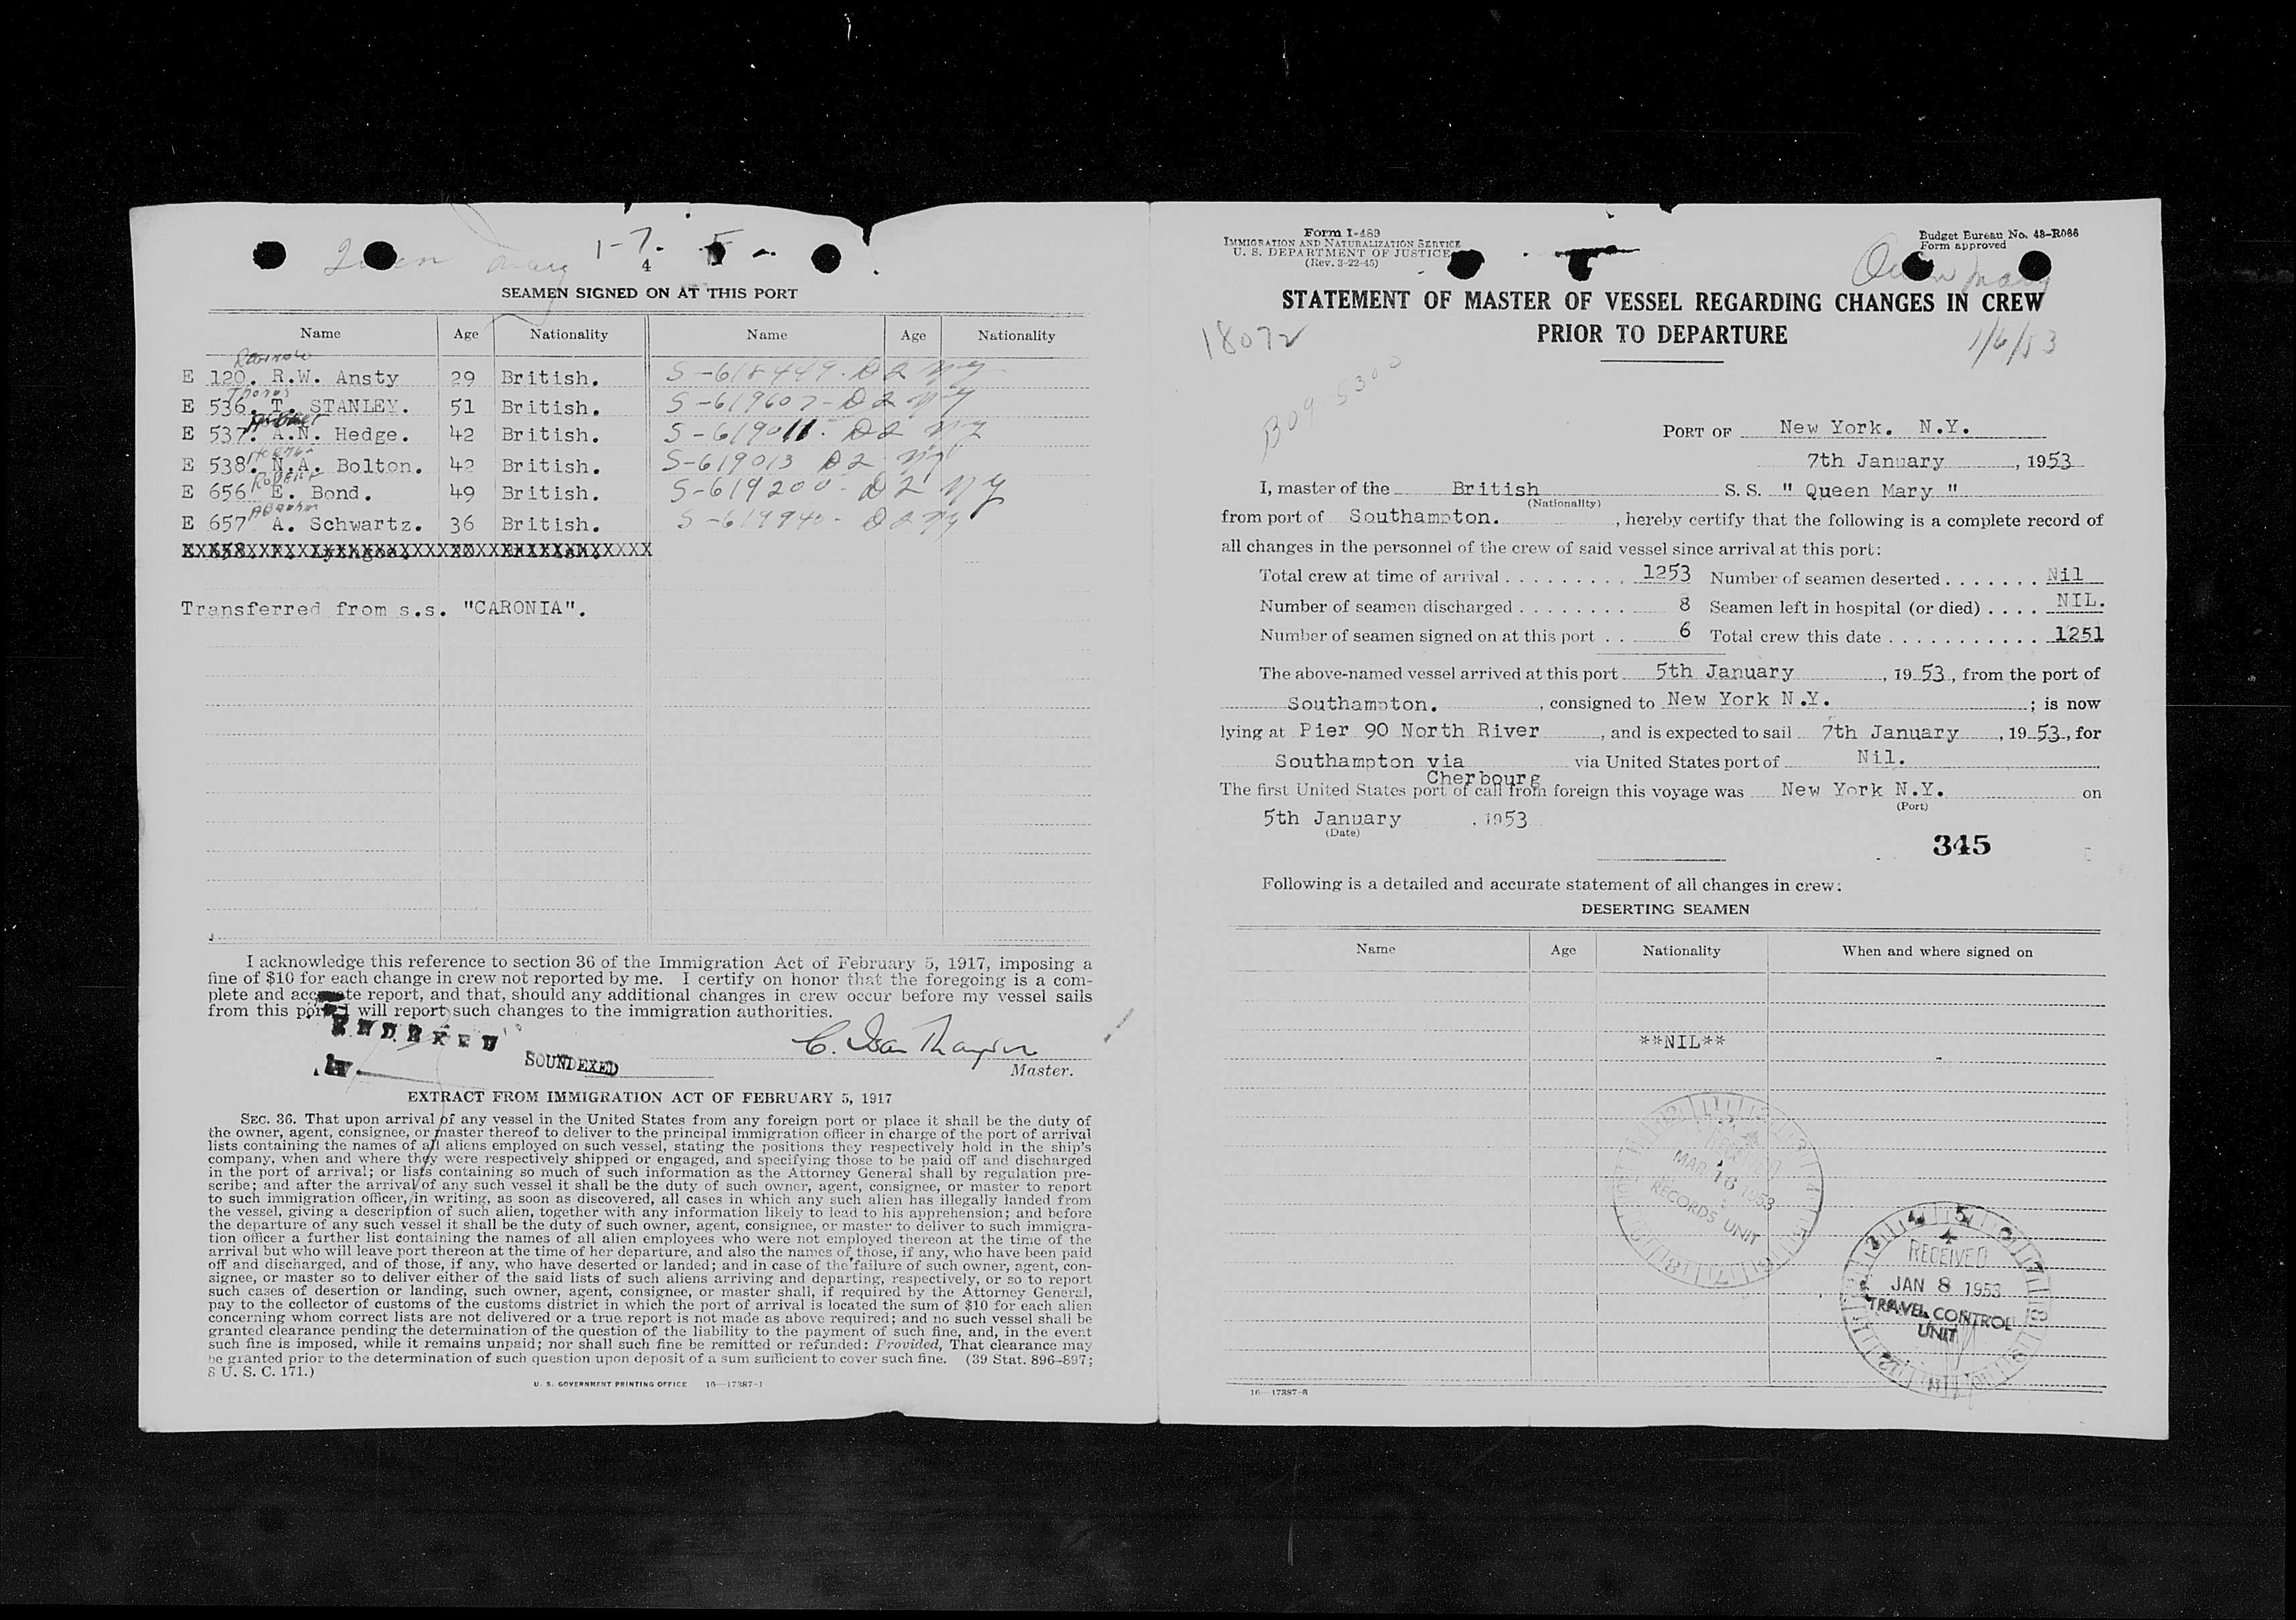 Queen Mary 1-7.
4
SEAMEN SIGNED ON AT THIS PORT
Name Age Nationality Name Age Nationality
E 120. R.W. Ansty 29 British. S-618449. D2 NY
Thomas
E 536. T. STANLEY. 51 British. S-619607- D2 NY
E 537. A.N. Hedge. 42 British. S-619011. D2 NY
E 538. N.A. Bolton. 42 British. S-619013 D2 NY
Robert
E 656 E. Bond. 49 British. S-619200- D2 NY
E 657 A. Schwartz. 36 British. S-619940- D2 NY
Transferred from s.s. "CARONIA".
I acknowledge this reference to section 36 of the Immigration Act of February 5, 1917, imposing a
fine of $10 for each change in crew not reported by me. I certify on honor that the foregoing is a com-
plete and accurate report, and that, should any additional changes in crew occur before my vessel sails
from this port I will report such changes to the immigration authorities.
INDEXED
SOUNDEXED
Master.
EXTRACT FROM IMMIGRATION ACT OF FEBRUARY 5, 1917
SEC. 36. That upon arrival of any vessel in the United States from any foreign port or place it shall be the duty of
the owner, agent, consignee, or master thereof to deliver to the principal immigration officer in charge of the port of arrival
lists containing the names of all aliens employed on such vessel, stating the positions they respectively hold in the ship's
company, when and where they were respectively shipped or engaged, and specifying those to be paid off and discharged
in the port of arrival; or lists containing so much of such information as the Attorney General shall by regulation pre-
scribe; and after the arrival of any such vessel it shall be the duty of such owner, agent, consignee, or master to report
to such immigration officer, in writing, as soon as discovered, all cases in which any such alien has illegally landed from
the vessel, giving a description of such alien, together with any information likely to lead to his apprehension; and before
the departure of any such vessel it shall be the duty of such owner, agent, consignee, or master to deliver to such immigra-
tion officer a further list containing the names of all alien employees who were not employed thereon at the time of the
arrival but who will leave port thereon at the time of her departure, and also the names of those, if any, who have been paid
off and discharged, and of those, if any, who have deserted or landed; and in case of the failure of such owner, agent, con-
signee, or master so to deliver either of the said lists of such aliens arriving and departing, respectively, or so to report
such cases of desertion or landing, such owner, agent, consignee, or master shall, if required by the Attorney General,
pay to the collector of customs of the customs district in which the port of arrival is located the sum of $10 for each alien
concerning whom correct lists are not delivered or a true report is not made as above required; and no such vessel shall be
granted clearance pending the determination of the question of the liability to the payment of such fine, and, in the event
such fine is imposed, while it remains unpaid; nor shall such fine be remitted or refunded: Provided, That clearance may
be granted prior to the determination of such question upon deposit of a sum sufficient to cover such fine. (39 Stat. 896-897;
8 U. S. C. 171.)
U. S. GOVERNMENT PRINTING OFFICE 16—17387-1
Form I-489
IMMIGRATION AND NATURALIZATION SERVICE
U. S. DEPARTMENT OF JUSTICE
(Rev. 3-22-45)
Budget Bureau No. 43-R066
Form approved
Queen Mary
STATEMENT OF MASTER OF VESSEL REGARDING CHANGES IN CREW
PRIOR TO DEPARTURE
18072
1/6/53
B09-5300
PORT OF New York. N.Y.
7th January, 1953
I, master of the British S. S. " Queen Mary "
(Nationality)
from port of Southampton. , hereby certify that the following is a complete record of
all changes in the personnel of the crew of said vessel since arrival at this port:
Total crew at time of arrival . . . . . . . . . 1253 Number of seamen deserted . . . . . . . Nil
Number of seamen discharged . . . . . . . . 8 Seamen left in hospital (or died) . . . . NIL.
Number of seamen signed on at this port . . 6 Total crew this date . . . . . . . . . . . . 1251
The above-named vessel arrived at this port 5th January, 1953, from the port of
Southampton. , consigned to New York N.Y. ; is now
lying at Pier 90 North River , and is expected to sail 7th January, 1953, for
Southampton via via United States port of Nil.
Cherbourg
The first United States port of call from foreign this voyage was New York N.Y. on
(Port)
5th January , 1953
(Date)
345
Following is a detailed and accurate statement of all changes in crew:
DESERTING SEAMEN
Name Age Nationality When and where signed on
**NIL**
RECEIVED
MAR 16 1953
RECORDS UNIT
RECEIVED
JAN 8 1953
TRAVEL CONTROL
UNIT
16—17387-3